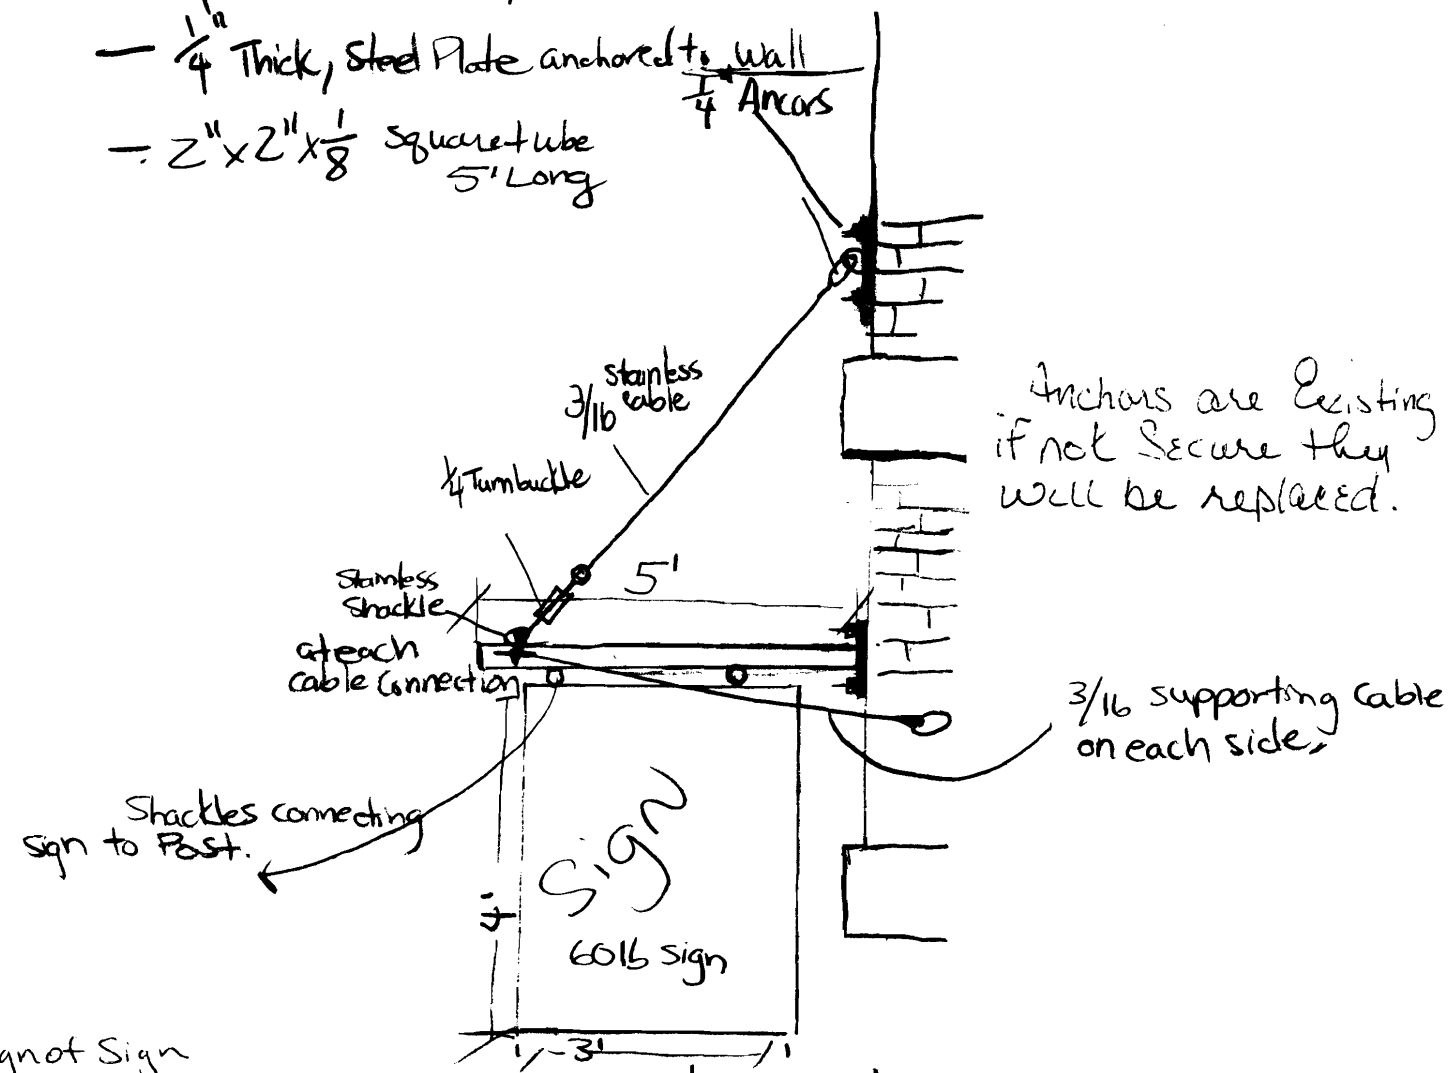 — 1/4" Thick, Steel Plate anchored to wall
1/4 Ancors
— 2" x 2" x 1/8 Square tube
5' Long
3/16 Stainless
cable
1/4 Turnbuckle
5'
Stainless
Shackle
at each
cable connection
Anchors are Existing
if not Secure they
will be replaced.
3/16 supporting cable
on each side.
Shackles connecting
sign to Post.
Sign
4'
60lb sign
3'
of Sign